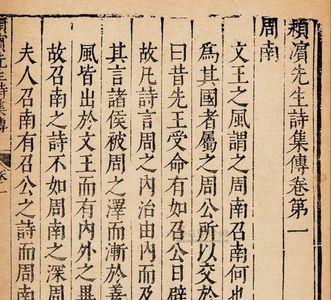 潁濱先生詩集傳卷第一
周南
文王之風謂之周南召南何也
為其國者屬之周公所以交於
曰昔先王受命有如召公日辟
故凡詩言周之內治由內而
其言諸侯被周之澤而漸於善
風皆出於文王而有內外之異
故召南之詩不如周南之深周
夫人召南有召公之詩而周南
潁濱先生詩集傳